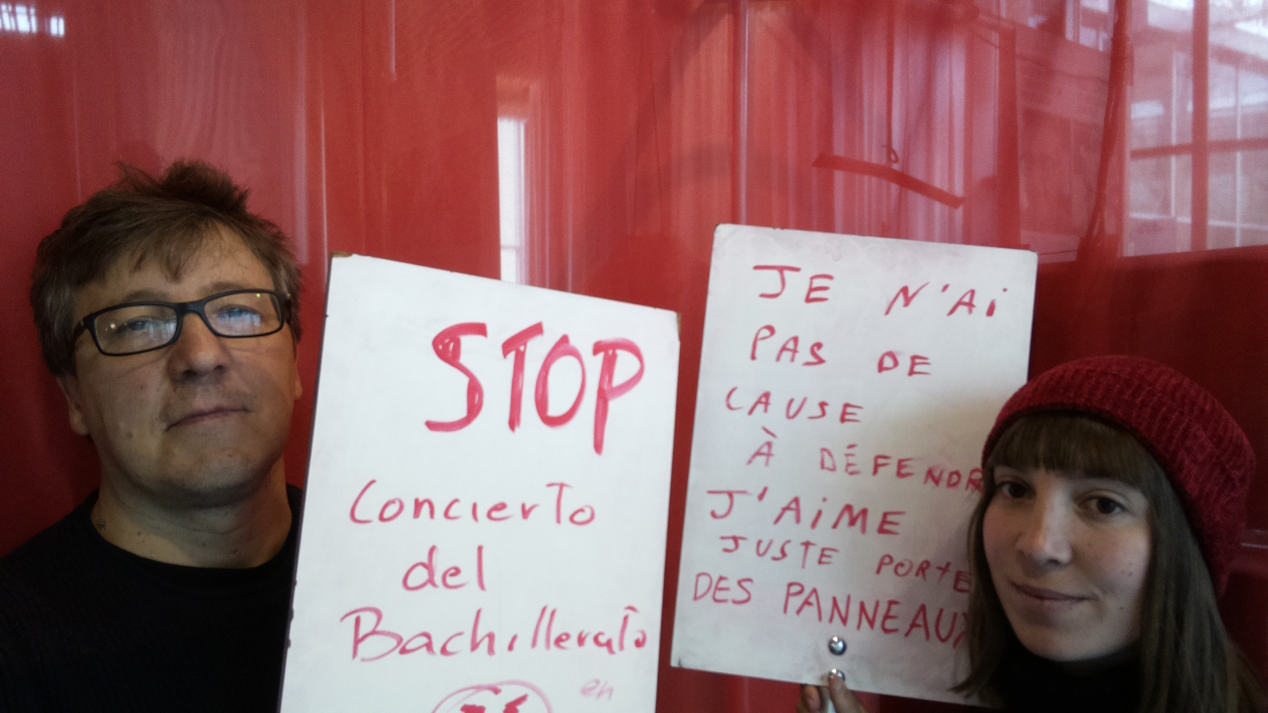 STOP
Concierto
del
Bachillerato
en
JE N'Ai
PAS DE
CAUSE
À DÉFENDR
J'AiME
JUSTE PORTE
DES PANNEAUX